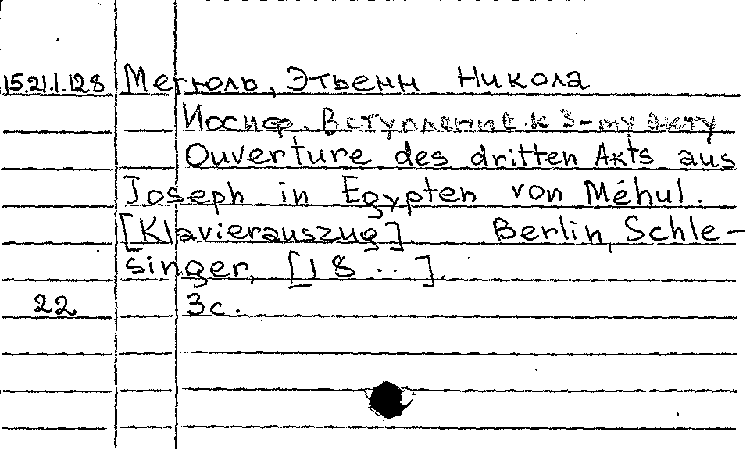 15.21.1.128 Мегюль, Этьенн Никола
Иосиф. Вступление к 3-му акту
Ouverture des dritten Akts aus
Joseph in Egypten von Méhul.
[Klavierauszug]. Berlin, Schle-
singer, [18 ..].
22 3с.